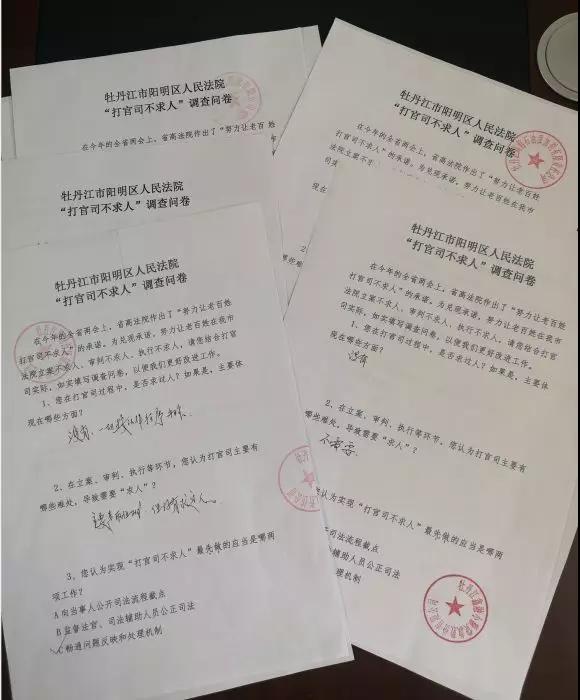 牡丹江市阳明区人民法院
“打官司不求人”调查问卷
在今年的全省两会上，省高法院作出了“努力让老百姓
牡丹江市阳明区人民法院
“打官司不求人”调查问卷
在今年的全省两会上，省高法院作出了“努力让老百姓
打官司不求人”的承诺。为兑现承诺，努力让老百姓在我市
法院立案不
牡丹江市阳明区人民法院
“打官司不求人”调查问卷
牡丹江市阳明区人民法院
“打官司不求人”调查问卷
在今年的全省两会上，省高法院作出了“努力让老百姓
打官司不求人”的承诺。为兑现承诺，努力让老百姓在我市
法院立案不求人、审判不求人、执行不求人，请您结合打官
司实际，如实填写调查问卷，以便我们更好改进工作。
1、您在打官司过程中，是否求过人？如果是，主要体
现在哪些方面？
没有
2、在立案、审判、执行等环节，您认为打官司主要有
哪些难处，导致需要“求人”？
不需要
您认为实现“打官司不求人”最先做的应当是哪两
公开司法流程截点
辅助人员公正司法
理机制
牡丹江市阳明区人民法院
“打官司不求人”调查问卷
在今年的全省两会上，省高法院作出了“努力让老百姓
打官司不求人”的承诺。为兑现承诺，努力让老百姓在我市
法院立案不求人、审判不求人、执行不求人，请您结合打官
司实际，如实填写调查问卷，以便我们更好改进工作。
1、您在打官司过程中，是否求过人？如果是，主要体
现在哪些方面？
没有
2、在立案、审判、执行等环节，您认为打官司主要有
哪些难处，导致需要“求人”？
3、您认为实现“打官司不求人”最先做的应当是哪两
项工作？
A 向当事人公开司法流程截点
B 监督法官、司法辅助人员公正司法
C 畅通问题反映和处理机制